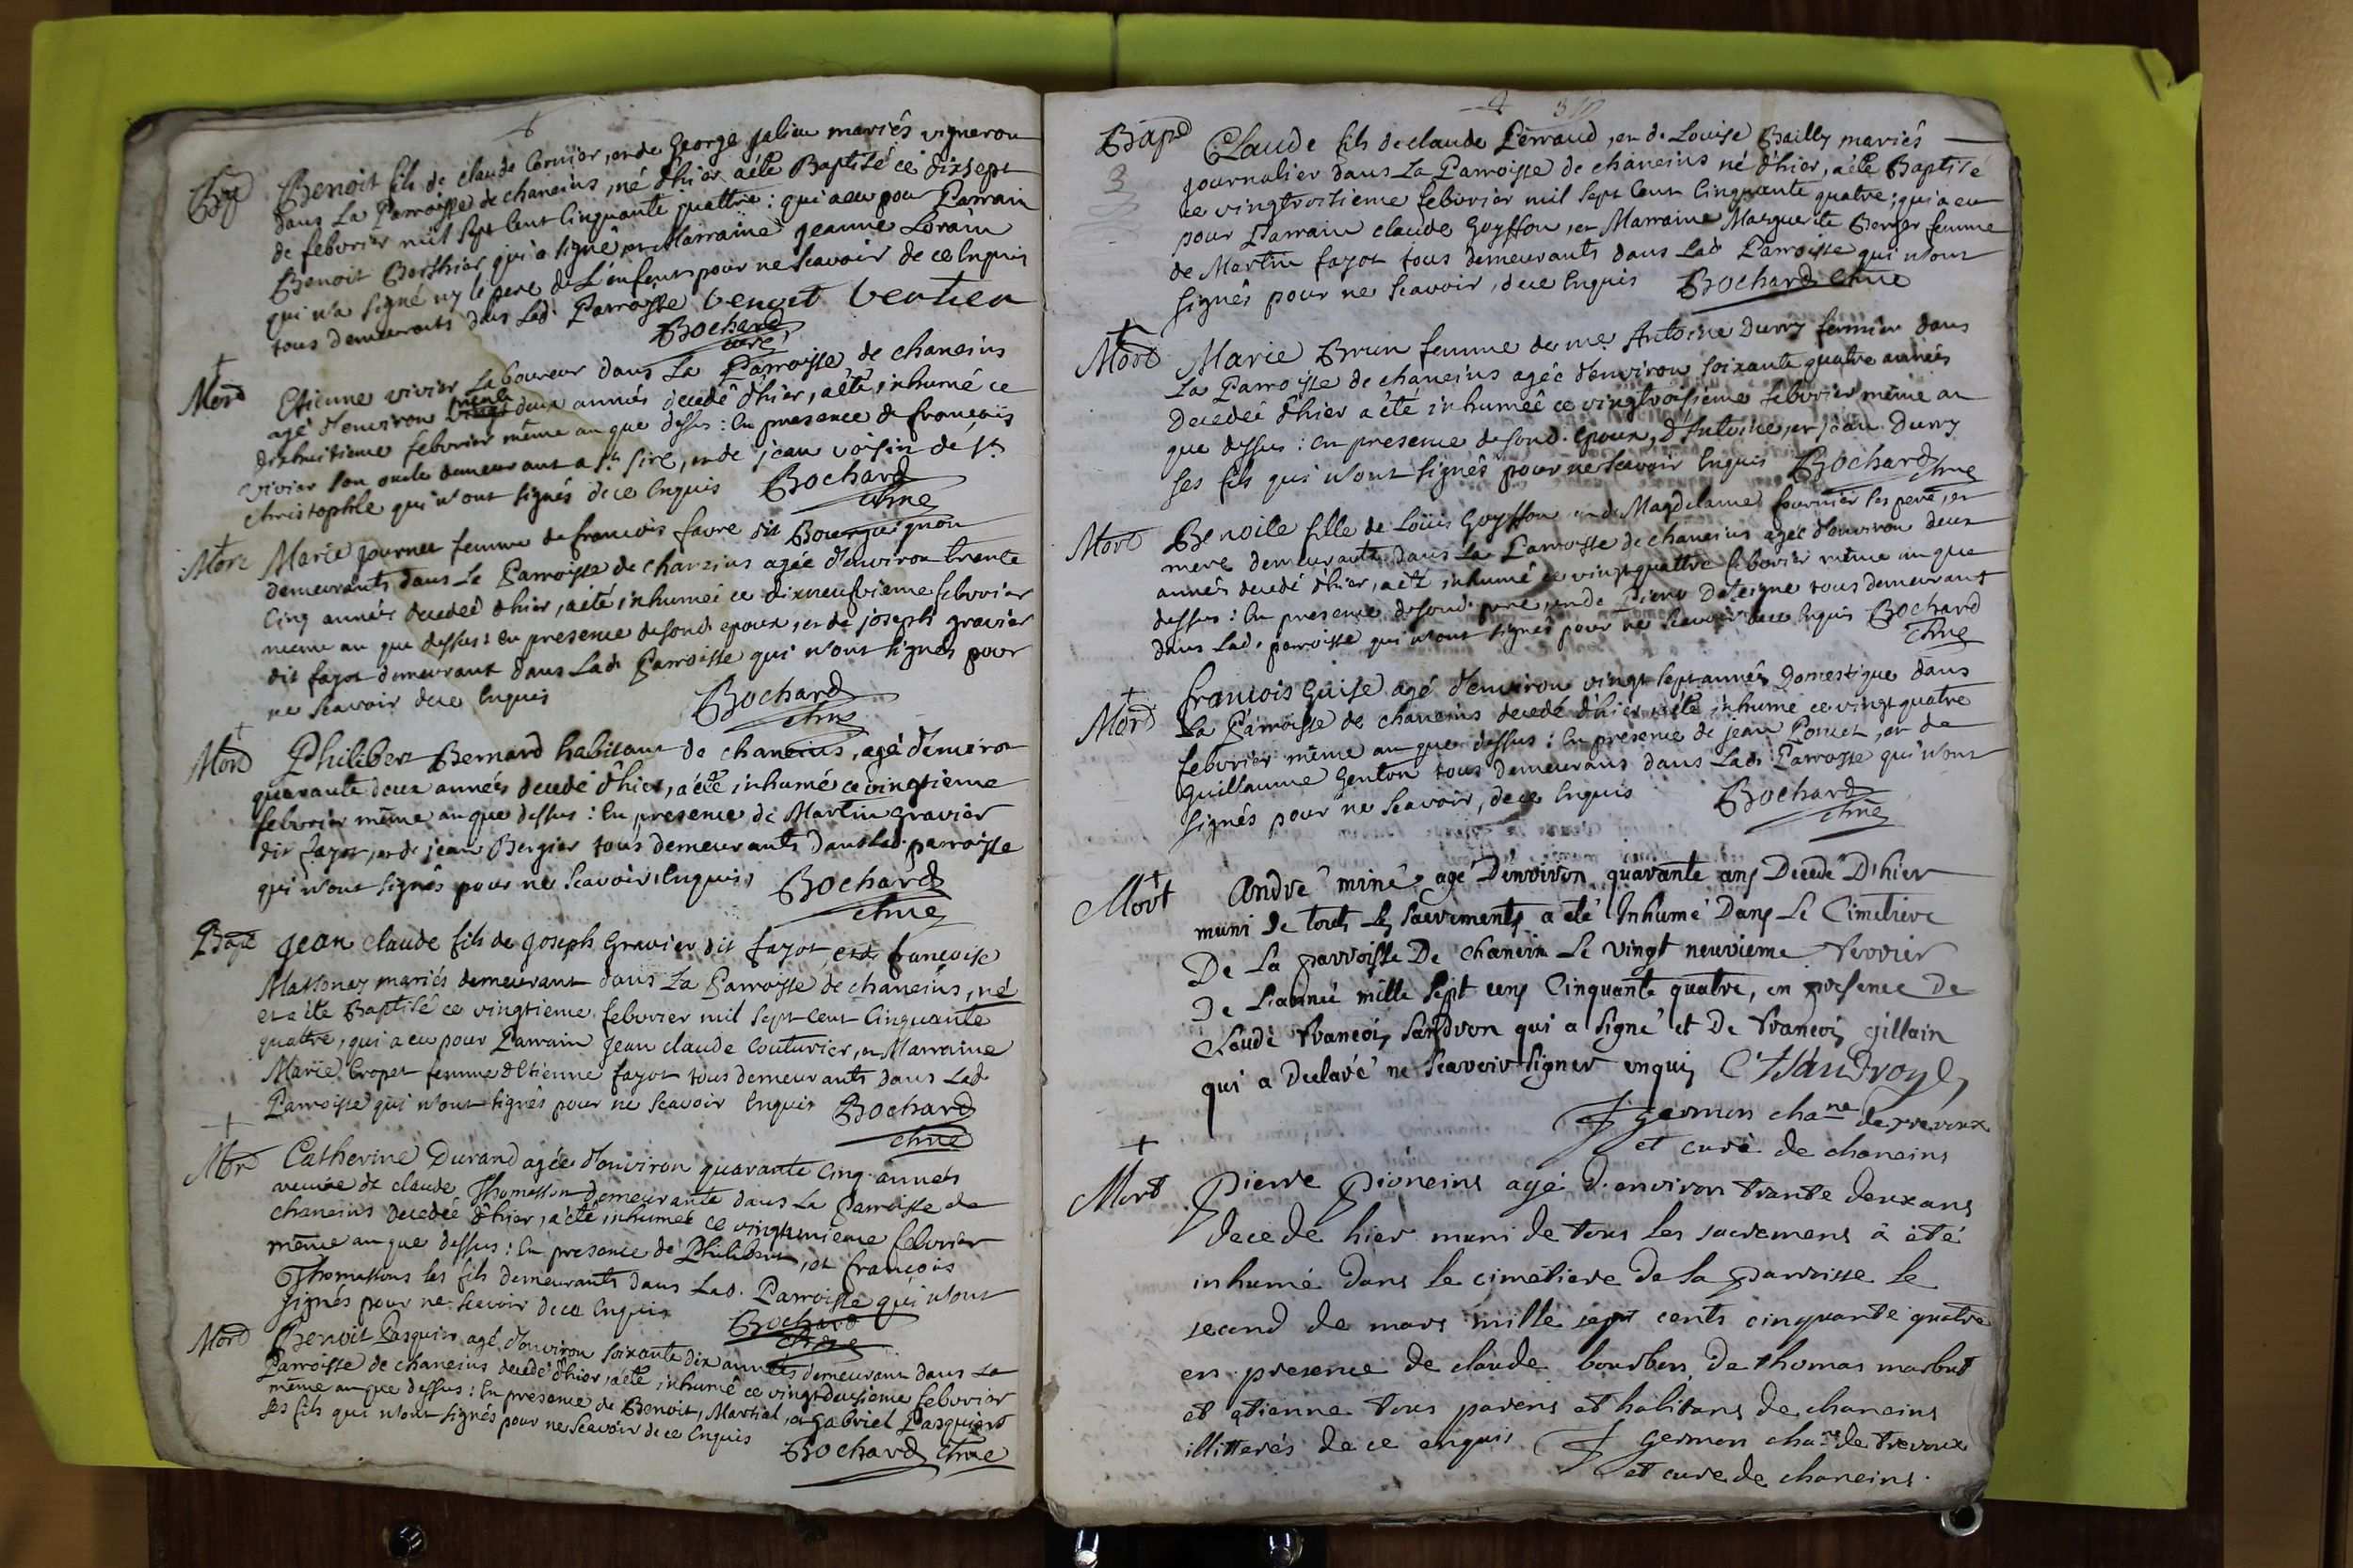 Bap
Benoit fils de claude Cornier, et de George Jalieu mariés vigneron
dans La Parroisse de chaneins, né d'hier a été Baptisé ce dixsept
de febvrier mil sept Cent Cinquante quattre : qui a eu pour Parrain
Benoit Berthier qui a signé et Marraine jeanne Lorain
qui n'a signé ny le pere de L'enfant pour ne scavoir de ce Enquis
tous demeurants dans Lad. Parroisse benoit bertier
Bochard
curé
Mort
Etienne vivier Laboureur dans La Parroisse de chaneins
agé d'environ trente deux années decedé d'hier, a été inhumé ce
dixhuitieme febvrier même an que dessus : En presence de françois
vivier son oncle demeurant a St. Sire, et de jean voisin de St.
christophle qui n'ont signés de ce Enquis Bochard
chne
Mort
Marie journet femme de francois favre dit Bourguignon
demeurants dans Le Parroisse de chaneins agée d'environ trente
Cinq années decedeé d'hier, a été inhumeé ce dixneufvieme febvrier
meme an que dessus : en presence de sond. epoux, et de joseph gravier
dit fayot demeurant dans Lad. Parroisse qui n'ont signés pour
ne scavoir de ce Enquis
Bochard
chne
Mort
Philibert Bernard habitant de chaneins, agé d'environ
quarante deux années decedé d'hier, a été inhumé ce vingtieme
febvrier même an que dessus : En presence de Martin gravier
dit fayot, et de jean Bergier tous demeurants dans Lad. parroisse
qui n'ont signés pour ne scavoir, Enquis, Bochard
chne
Bapt
jean claude fils de joseph Gravier dit fayot, et de francoise
Massoney mariés demeurant dans La Parroisse de chaneins, né
et a été Baptisé ce vingtieme febvrier mil sept Cent Cinquante
quattre, qui a eu pour Parrain Jean claude Couturier, et Marraine
Marie Cropet femme d'Etienne fayot tous demeurants dans Lad.
Parroisse qui n'ont signés pour ne scavoir Enquis Bochard
chne
Mort
Catherine Durand agée d'environ quarante Cinq années
veuve de claude Thomasson demeurante dans La Parroisse de
chaneins decedée d'hier, a été inhumeé ce vingtunieme febvrier
même an que dessus : En presence de Philibert, et françois
Thomassons ses fils demeurants dans Lad. Parroisse qui n'ont
signés pour ne scavoir de ce Enquis
Bochard
chne
Mort
Benoit Pasquier agé d'environ soixante dix années demeurant dans La
Parroisse de chaneins decedé d'hier, a été inhumé ce vingtdeuxieme febvrier
même an que dessus : En presence de Benoit, Martial, et Gabriel Pasquiers
ses fils qui n'ont signés pour ne scavoir de ce Enquis
Bochard chne
Bapt
3
Claude fils de claude Perraud, et de Louise Bailly mariés
journalier dans La Parroisse de chaneins né d'hier, a été Baptisé
ce vingtroisieme febvrier mil sept Cent Cinquante quatre ; qui a eu
pour Parrain claude Goyffon, et Marraine Marguerite Berger femme
de Martin fayot tous demeurants dans Lad. Parroisse qui n'ont
signés pour ne scavoir, de ce Enquis Bochard chne
Mort
Marie Brun femme de me Antoine Durry fermier dans
La Parroisse de chaneins agéé d'environ soixante quatre années
Decedeé d'hier a été inhumeé ce vingtroisieme febvrier même an
que dessus : en presence de sond. Epoux, d'Antoine, et jean Durry
ses fils qui n'ont signés pour ne scavoir Enquis Bochard chne
Mort
Benoite fille de Loüis Goyffon et de Magdelaine fournier ses pere, et
mere demeurants dans La Parroisse de chaneins ageé d'environ deux
années decedé d'hier, a été inhumé ce vingtquattre febvrier même an que
dessus : En presence de sond. pere, et de Pierre Deteigne tous demeurant
dans Lad. parroisse qui n'ont signés pour ne scavoir de ce Enquis Bochard
chne
Mort
francois Guise agé d'environ vingt sept années Domestique dans
La Parroisse de chaneins decedé d'hier a été inhumé ce vingtquatre
febvrier même an que dessus : En presence de jean Poncet, et de
Guillaume Genton tous demeurans dans Lad. Parroisse qui n'ont
signés pour ne scavoir, de ce Enquis Bochard
chne
Mort
André miné agé D'environ quarante ans Decedé D'hier
muni de touts les sacrements a été Inhumé Dans Le Cimetiere
De La parroisse De chanein Le vingt neuvieme fevrier
De L'année mille sept cens Cinquante quatre, en presence De
Claude francois Sandron qui a signé et De francois gillain
qui a Declaré ne scavoir signer enquis
germon chane de trevoux
et curé de chaneins
Mort
pierre pioneins agé d'environ trante deux ans
decedé hier muni de tous les sacremens a été
inhumé dans le cimetiere de la parroisse le
second de mars mille sept cents cinquante quatre
en presence de claude bourbon de thomas marbut
et etienne tous parens et habitans de chaneins
illitterés de ce enquis germon chane de trevoux
et cure de chaneins